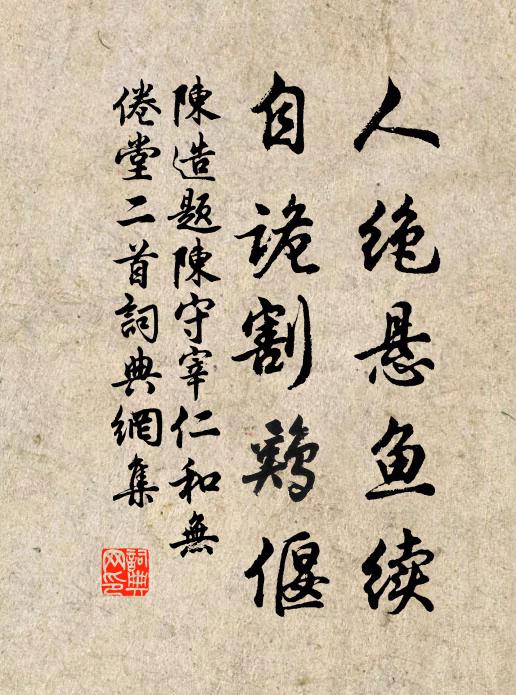 人绝悬鱼续
自诡割鸡偃
陳造题陳守宰仁和無
倦堂二首詞典網集
詞典網印